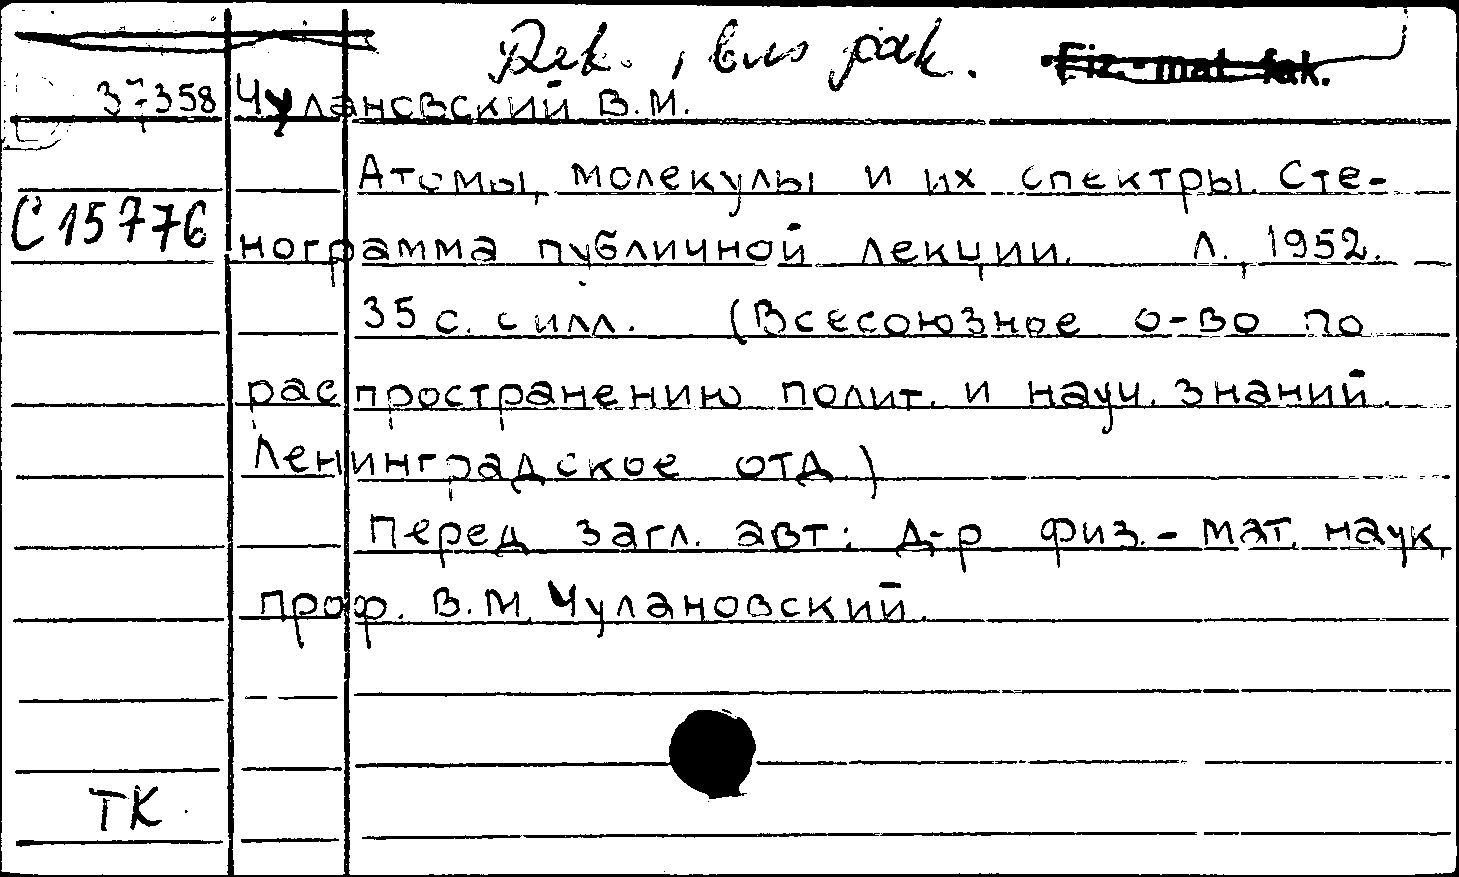 fak. Fiz.-mat. fak.
3-358 Чулановский В.М.
Атомы, молекулы и их спектры. Сте-
С 15776 нограмма публичной лекции. Л., 1952.
35 с. с илл. (Всесоюзное о-во по
распространению полит. и науч. знаний.
Ленинградское отд.)
Перед загл. авт: д-р физ.-мат. наук,
проф. В.М. Чулановский.
ТК